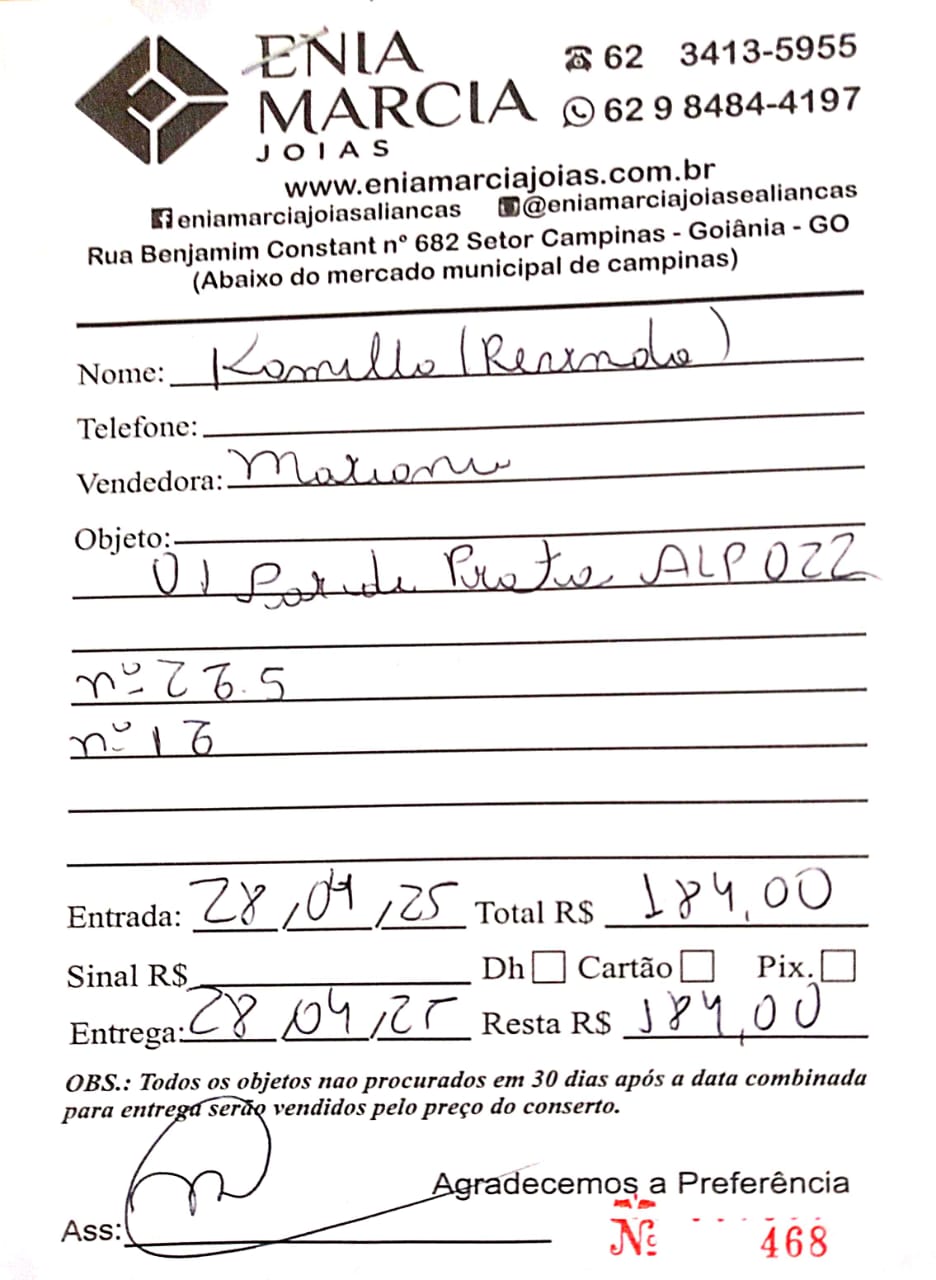 ENIA
MARCIA
JOIAS
62 3413-5955
62 9 8484-4197
www.eniamarciajoias.com.br
eniamarciajoiasaliancas @eniamarciajoiasealiancas
Rua Benjamim Constant nº 682 Setor Campinas - Goiânia - GO
(Abaixo do mercado municipal de campinas)
Nome: Kamilla (Revenda)
Telefone:
Vendedora:
Objeto:
01 Par de Prata ALP022
nº 26.5
nº 16
Entrada: 28/04/25 Total R$ 184,00
Sinal R$ Dh Cartão Pix.
Entrega: 28/04/25 Resta R$ 184,00
OBS.: Todos os objetos nao procurados em 30 dias após a data combinada
para entrega serão vendidos pelo preço do conserto.
Agradecemos a Preferência
Ass:
Nº 468